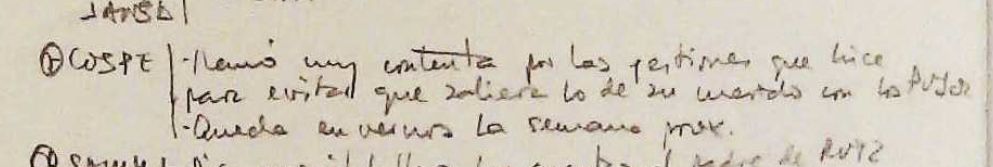 JAVSA
COSPE -Llamó muy contenta por las gestiones que hice
para evitar que saliera lo de su marido con los PUJOL
-Queda en vernos la semana prox.
padre de RUIZ